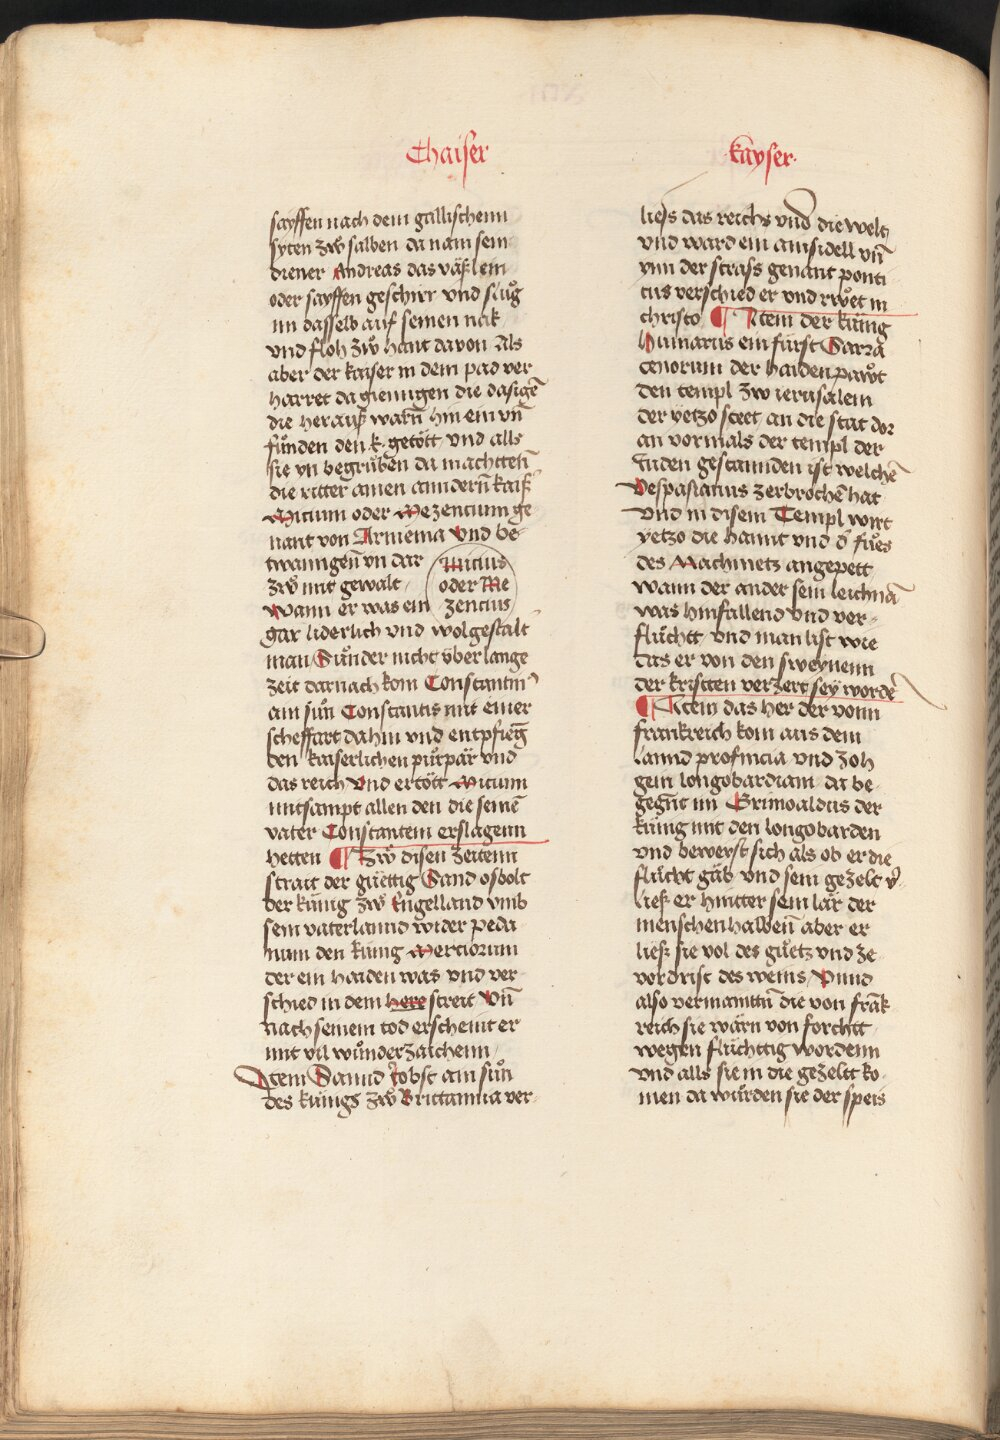 Chaiser
sayffen nach dem gallischenn
syten zw salben da nam sein
diener Andreas das väslein
oder sayffen geschirr vnd slug
im dasselb auf seinen nak
vnd floh zw hant davon Als
aber der kaiser in dem pad ver
harret da giemngen die dasigē
die herauß warn hin ein vn̄
funden den k. getött vnd alls
sie yn begruben da machttein
die ritter ainen anndern kaiß
Micium oder Mezentium ge
nant von Armenia Vnd be
twanngen yn dar
zw mit gewalt
Micius
oder Me
zencius
Wann er was ein
gar liderlich vnd wolgestalt
man Sunder nicht vber lange
zeit darnach kom Constantin
ain sun Constantis mit einer
scheffart dahin vnd entpfieg
den kaiserlichen purpär vnd
das reich Vnd ertött Micium
mitsampt allen den die seinē
vater Constantem erslagenn
hetten ¶ Zw disen zeitenn
strait der güettig Sand osbolt
der kunig zw Engelland vmb
sein vaterlannd wider peda
num den kunig Merciorum
der ein haiden was vnd ver
schied in dem here streit Vn̄
nach seinem tod erscheint er
mit vil wunderzaichenn
Item Sannd Jobst ain sun
des kunigs zw Brittannia ver
kayser
lies das reichs vnd die welt
vnd ward ein ainsidell vn̄
ynn der strass genant ponti
cus verschied er vnd rwet in
christo ¶ Item der kunig
Humarus ein fürst Sarra
cenorum der haiden pawt
den templ zw ierusalem
der yetzo steet an die stat dor
an vormals der templ der
Juden gestannden ist welchē
Vespasianus zerbrochē hat
Vnd in disem Templ wirt
yetzo die hannt vnd d' fues
des Machmetz angepett
wann der ander sein leichnā
was hinfallend vnd ver
flüchtt vnd man list wie
das er von den sweynenn
der kristten verzert sey wordē
¶ Item das her der vonn
frankreich kom aus dem
lannd profincia vnd zoh
gein longobardiam da be
gegnt im Grimoaldus der
kunig mit den longobarden
vnd beweyst sich als ob er die
flucht gäb vnd sein gezelt v'
ließ er hintter sein lär der
menschen halben aber er
ließ sie vol des guetz vnd ze
vordrist des weins Vnnd
also vermaintn die von frāk
reich sie wärn von forchtt
wegen fluchttig wordenn
vnd alls sie in die gezeltt ko
men da wurden sie der speis